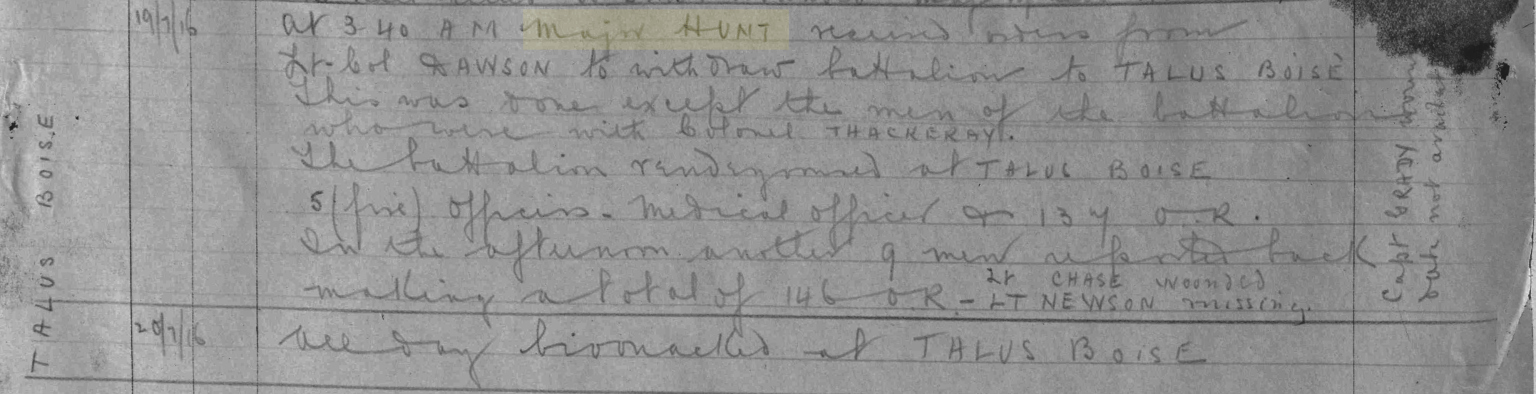 TALUS BOISE
19/7/16
at 3 40 AM Major HUNT received orders from
Lt-Col DAWSON to withdraw battalion to TALUS BOISÉ
This was done except the men of the battalion
who were with Colonel THACKERAY.
The battalion rendezvoused at TALUS BOISE
5 (five) officers. Medical officer & 137 O.R.
In the afternoon another 9 men reported back
making a total of 146 O.R. - Lt CHASE wounded
LT NEWSON missing.
20/7/16
All day bivouacked at TALUS BOISE
Capt BRADY
but not